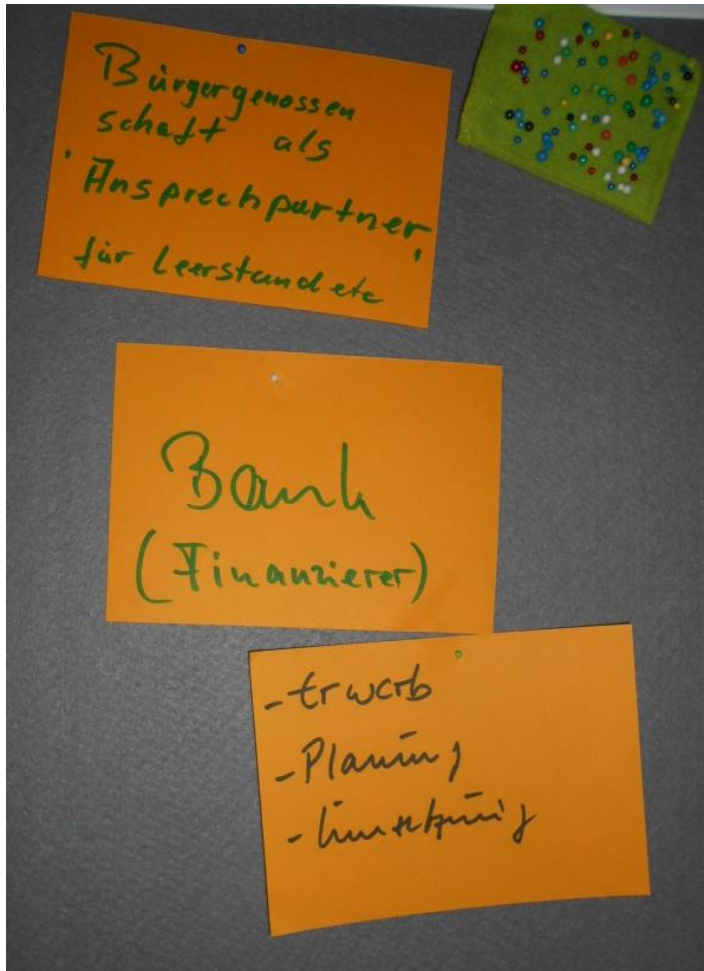 Bürgergenossen
schaft als
'Ansprechpartner'
für Leerstand etc
Bank
(Finanzierer)
- Erwerb
- Planung
- Umsetzung